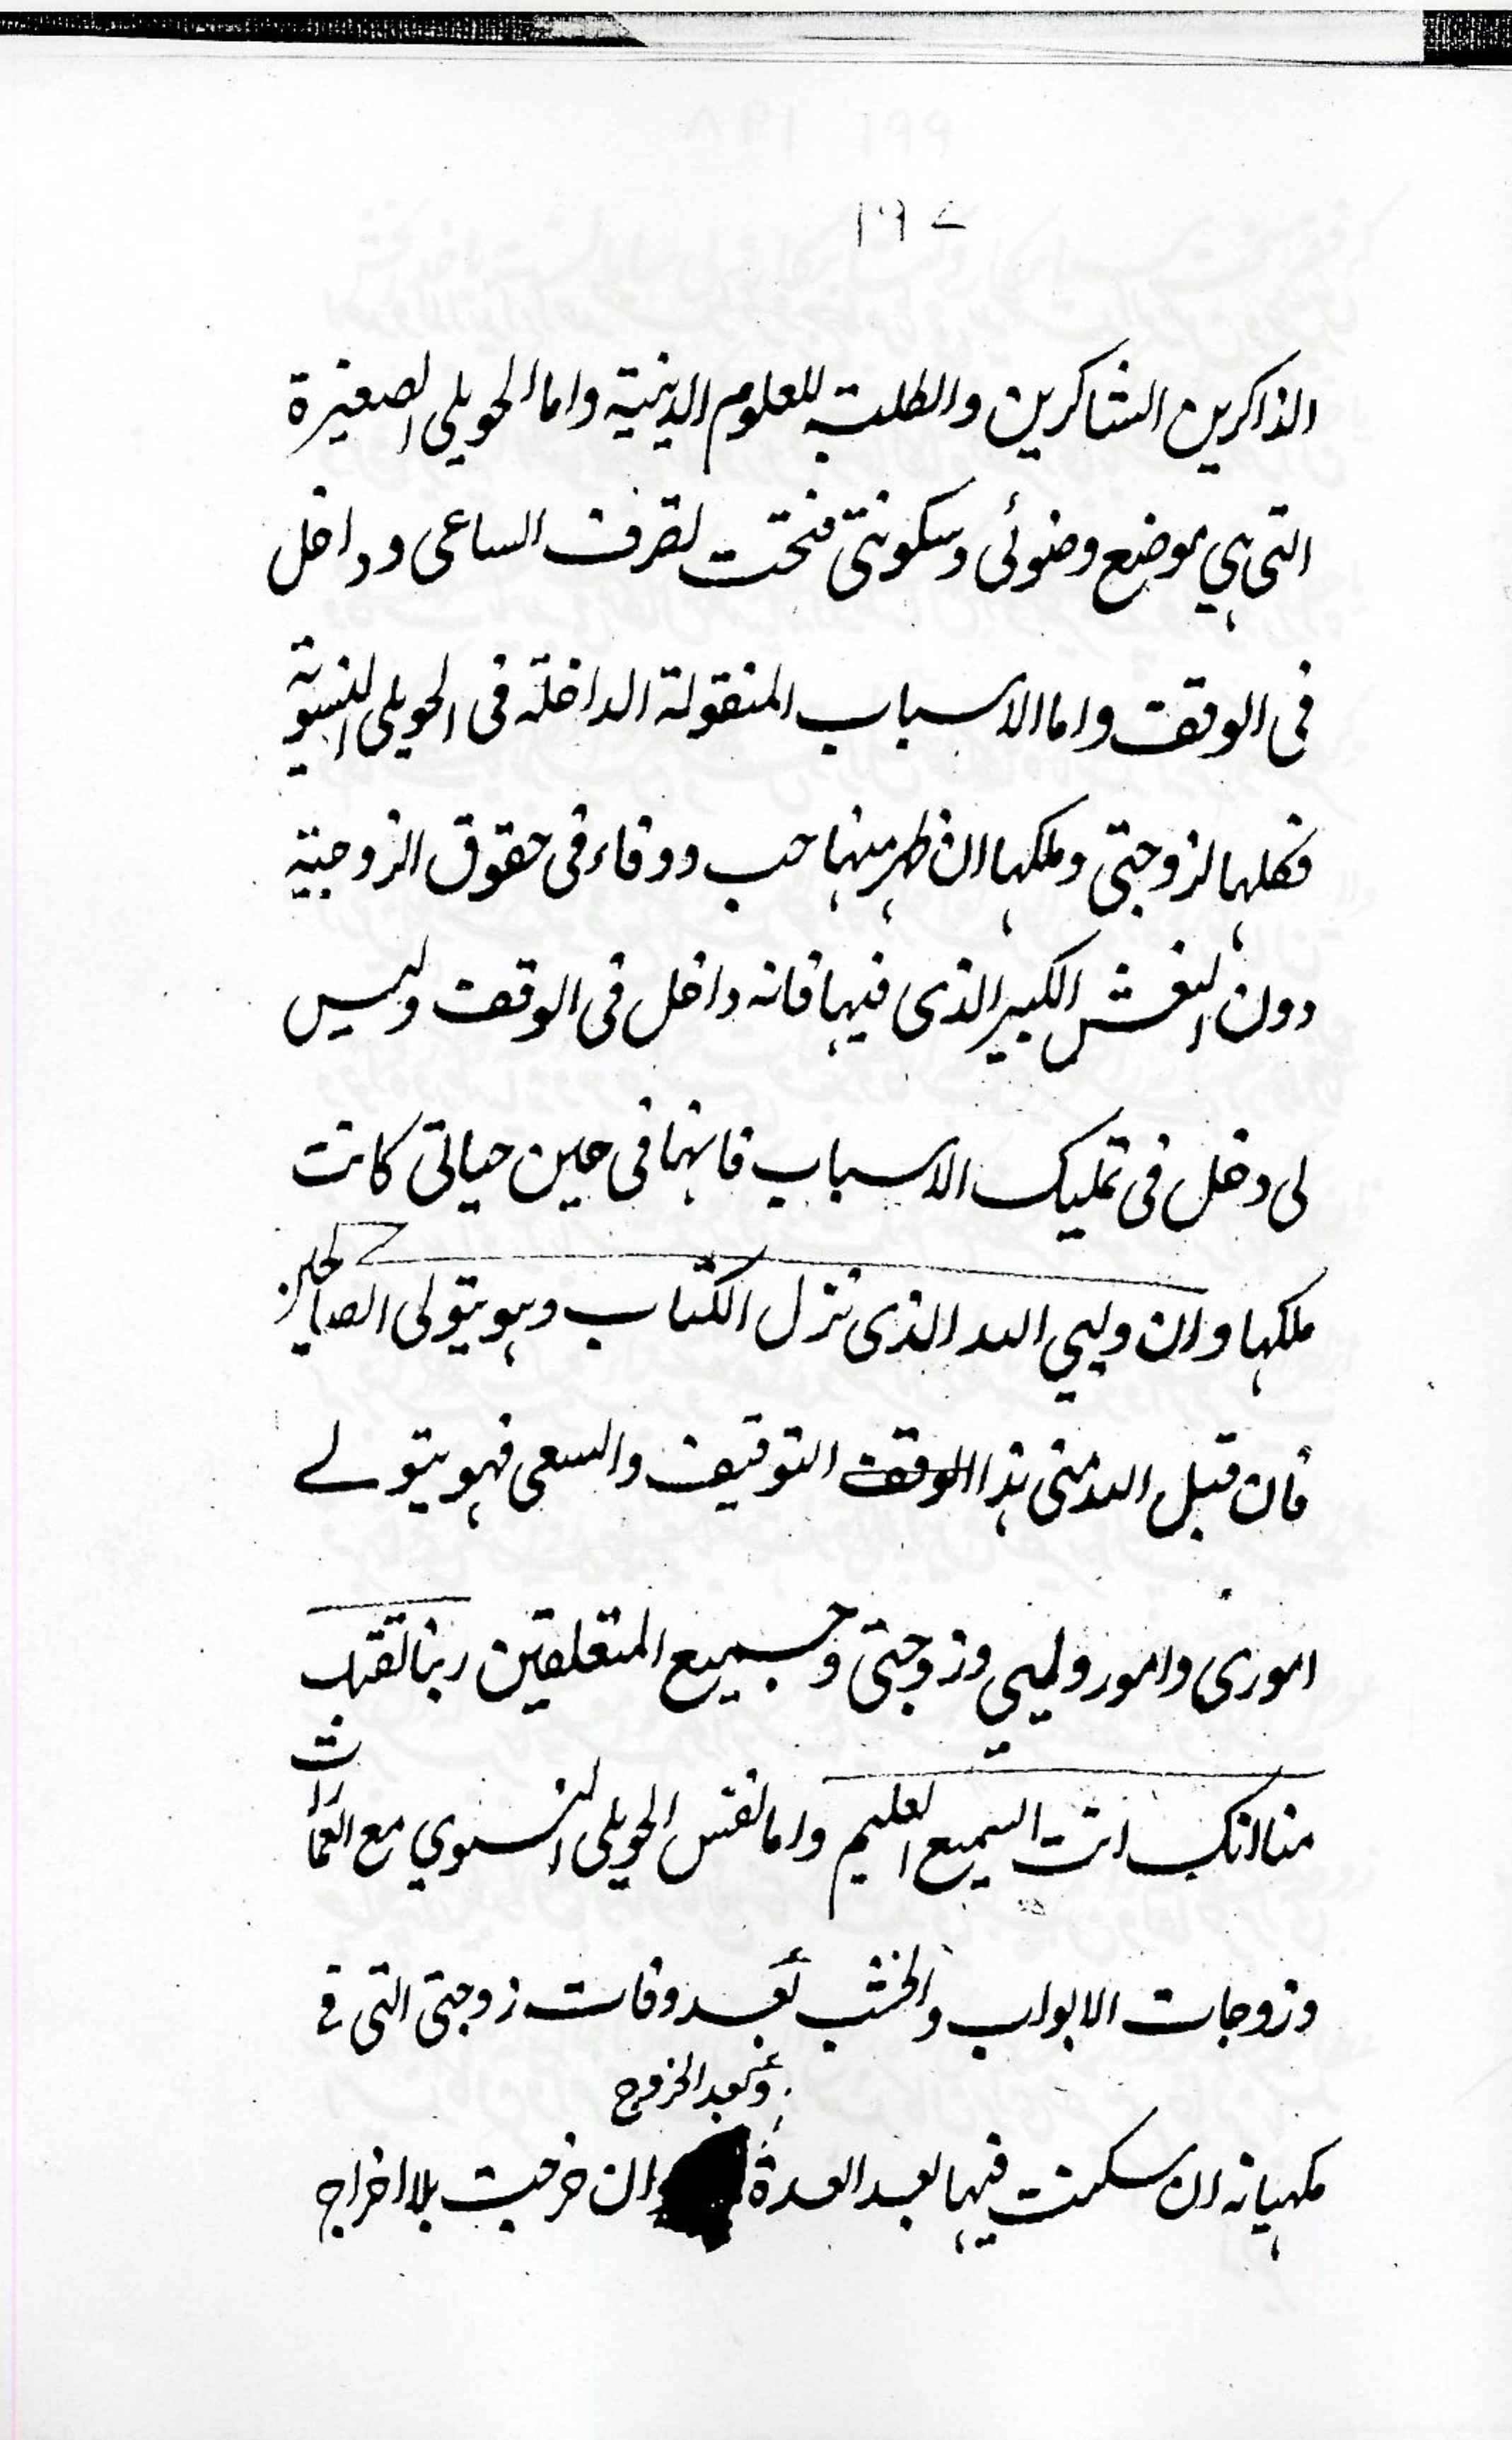 ۱۹۷
الذاكرين الشاكرين والطلبة للعلوم الدينية واما الحويلي الصغيرة
التي هي موضع وضوئي وسكونتي فتحت تصرف الساعي وداخل
في الوقف واما الاسباب المنقولة الداخلة في الحويلي النسوية
فكلها لزوجتي وملكها ان ظهر منها حب ووفاء في حقوق الزوجية
دون الفرش الكبير الذي فيها فانه داخل في الوقف وليس
لي دخل في تمليك الاسباب فانها في حين حياتي كانت
ملكها وان وليي الله الذي نزل الكتاب وهو يتولى الصالحين
فان قبل الله مني هذا الوقف التوقيف والسعي فهو يتولے
اموري وامور وليي وزوجتي وجميع المتعلقين ربنا تقبل
منا انك انت السميع العليم واما نفس الحويلي النسوي مع العمارات
وزوجات الابواب والخشب بعد وفات زوجتي التي في
وبعد الخروج
مكهيانه ان سكنت فيها بعد العدة ان خرجت بلا اخراج